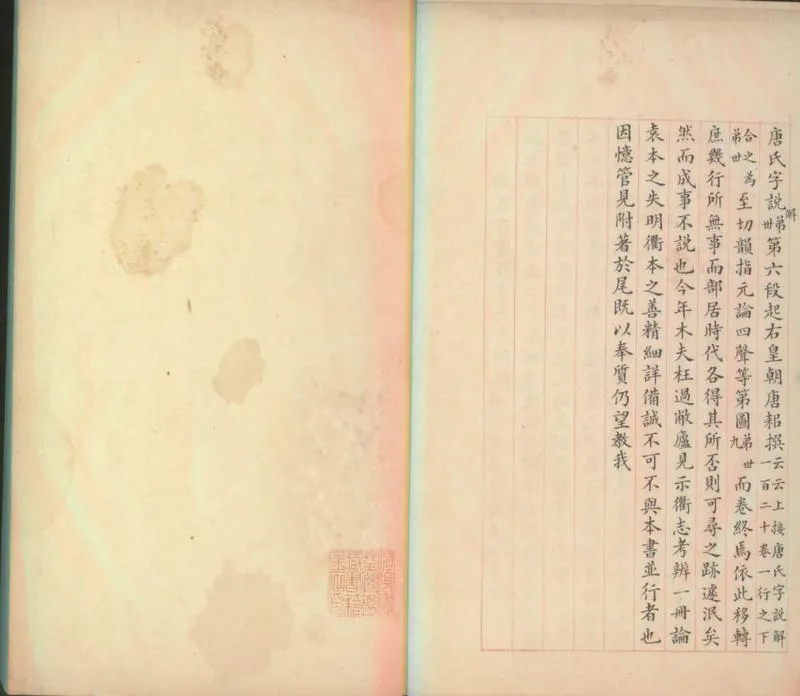 唐氏字說解弟卅第六段起右皇朝唐耜撰云云上接唐氏字說解一百二十卷一行之下
合之為弟卅至切韻指元論四聲等第圖弟卅九而卷終焉依此移轉
庶幾行所無事而部居時代各得其所否則可尋之跡遽泯矣
然而成事不說也今年木夫枉過敝廬見示衢志考辨一冊論
袁本之失明衢本之善精細詳備誠不可不與本書並行者也
因憶管見附著於尾既以奉質仍望教我